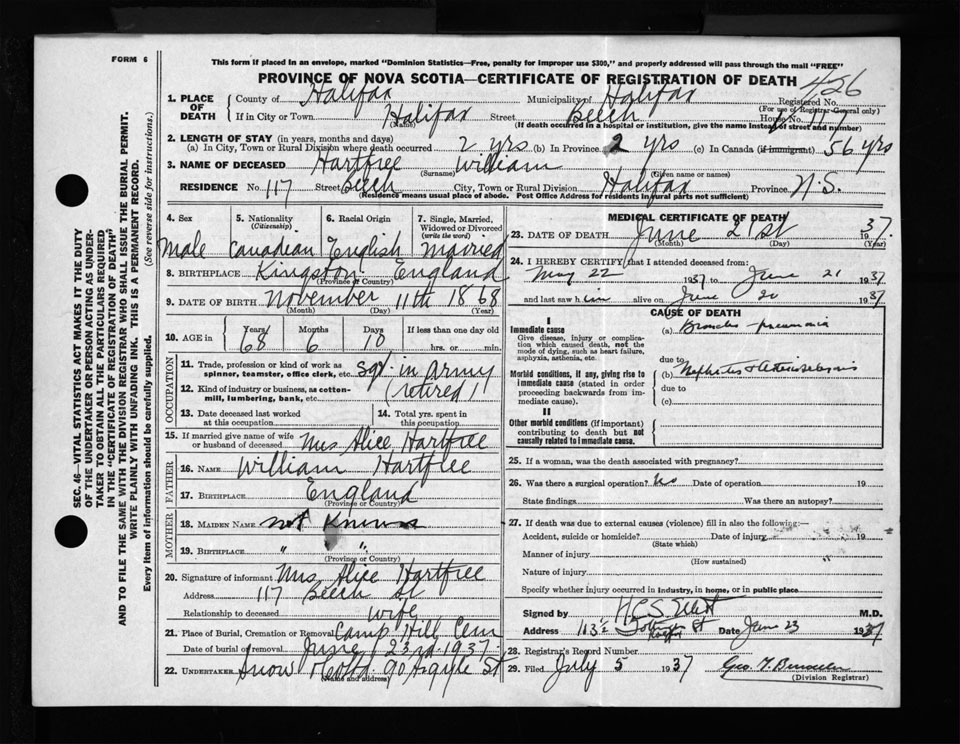 FORM 6
This form if placed in an envelope, marked "Dominion Statistics—Free, penalty for improper use $300," and properly addressed will pass through the mail "FREE"
PROVINCE OF NOVA SCOTIA—CERTIFICATE OF REGISTRATION OF DEATH 426
1. PLACE OF DEATH
County of Halifax Municipality of Halifax Registered No.
(For use of Registrar-General only)
If in City or Town Halifax Street Beech House No. 117
(Name) (If death occurred in a hospital or institution, give the name instead of street and number)
2. LENGTH OF STAY (in years, months and days)
(a) In City, Town or Rural Division where death occurred 2 yrs (b) In Province 2 yrs (c) In Canada (if immigrant) 56 yrs
3. NAME OF DECEASED Hartfree William
(Surname) (Given name or names)
RESIDENCE No. 117 Street Beech City, Town or Rural Division Halifax Province N.S.
(Residence means usual place of abode. Post Office Address for residents in rural parts not sufficient)
4. Sex 5. Nationality (Citizenship) 6. Racial Origin 7. Single, Married, Widowed or Divorced (write the word)
Male Canadian English Married
8. BIRTHPLACE Kingston England
(Province or Country)
9. DATE OF BIRTH November 11th 1868
(Month) (Day) (Year)
10. AGE in Years Months Days If less than one day old
68 6 10 hrs. or min.
OCCUPATION
11. Trade, profession or kind of work as spinner, teamster, office clerk, etc. Sgt in Army
12. Kind of industry or business, as cotton-mill, lumbering, bank, etc. (retired)
13. Date deceased last worked at this occupation
14. Total yrs. spent in this occupation
15. If married give name of wife or husband of deceased Mrs Alice Hartfree
FATHER
16. NAME William Hartfree
17. BIRTHPLACE England
(Province or Country)
MOTHER
18. MAIDEN NAME not Known
19. BIRTHPLACE " "
(Province or Country)
20. Signature of informant Mrs Alice Hartfree
Address 117 Beech St
Relationship to deceased Wife
21. Place of Burial, Cremation or Removal Camp Hill Cem
Date of burial or removal June 23rd 1937
22. UNDERTAKER Snow & Co Ltd. 90 Argyle St
(Name and address)
MEDICAL CERTIFICATE OF DEATH
23. DATE OF DEATH June 21st 1937
(Month) (Day) (Year)
24. I HEREBY CERTIFY that I attended deceased from:
May 22 1937 to June 21 1937
and last saw him alive on June 20 1937
CAUSE OF DEATH
I
Immediate cause
Give disease, injury or complication which caused death, not the mode of dying, such as heart failure, asphyxia, asthenia, etc.
(a) Broncho-pneumonia
due to
Morbid conditions, if any, giving rise to immediate cause (stated in order proceeding backwards from immediate cause).
(b) Nephritis & Arteriosclerosis
due to
(c)
II
Other morbid conditions (if important) contributing to death but not causally related to immediate cause.
25. If a woman, was the death associated with pregnancy?
26. Was there a surgical operation? No Date of operation 19
State findings Was there an autopsy?
27. If death was due to external causes (violence) fill in also the following:—
Accident, suicide or homicide? Date of injury 19
(State which)
Manner of injury
(How sustained)
Nature of injury
Specify whether injury occurred in industry, in home, or in public place
Signed by M.D.
Address Date June 23 1937
28. Registrar's Record Number
29. Filed July 5 1937 Geo.
(Division Registrar)
SEC. 46—VITAL STATISTICS ACT MAKES IT THE DUTY
OF THE UNDERTAKER OR PERSON ACTING AS UNDER-
TAKER TO OBTAIN ALL THE PARTICULARS REQUIRED
IN THE "CERTIFICATE OF REGISTRATION OF DEATH"
AND TO FILE THE SAME WITH THE DIVISION REGISTRAR WHO SHALL ISSUE THE BURIAL PERMIT.
WRITE PLAINLY WITH UNFADING INK. THIS IS A PERMANENT RECORD.
Every item of information should be carefully supplied. (See reverse side for instructions.)